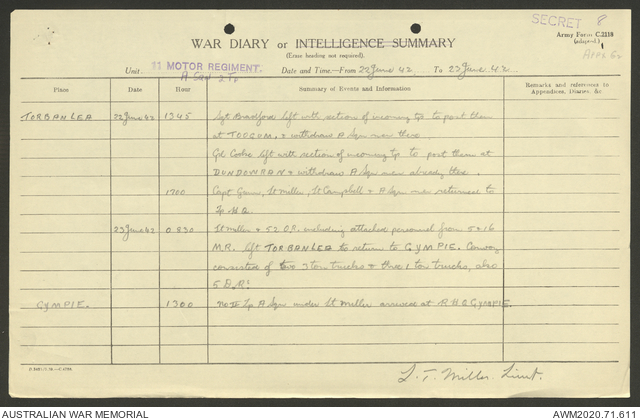 SECRET 8
Army Form C.2118
(adapted.)
WAR DIARY or INTELLIGENCE SUMMARY
(Erase heading not required).
Unit 11 MOTOR REGIMENT. Date and Time—From 22 June 42 To 23 June 42
A Sqn 2 Tp
Place Date Hour Summary of Events and Information Remarks and references to Appendices, Diaries, &c.
TORBANLEA 22 June 42 1345 Sgt Bradford left with section of incoming tp to post them
at TOOGUM, & withdraw A Sqn men there
Cpl Cooke left with section of incoming tp to post them at
DUNDOWRAN & withdraw A Sqn men already there.
1700 Capt Lt Miller, Lt Campbell & A Sqn men returned to
Tp H.Q.
23 June 42 0830 Lt Miller & 52 O.R. including attached personnel from 5 & 16
M.R. left TORBANLEA to return to GYMPIE. Convoy
consisted of two 3 ton trucks & three 1 ton trucks, also
5 D.R.s
GYMPIE. 1300 No II Tp A Sqn under Lt Miller arrived at R.H.Q GYMPIE.
L. T. Miller. Lieut.
AUSTRALIAN WAR MEMORIAL
AWM2020.71.611